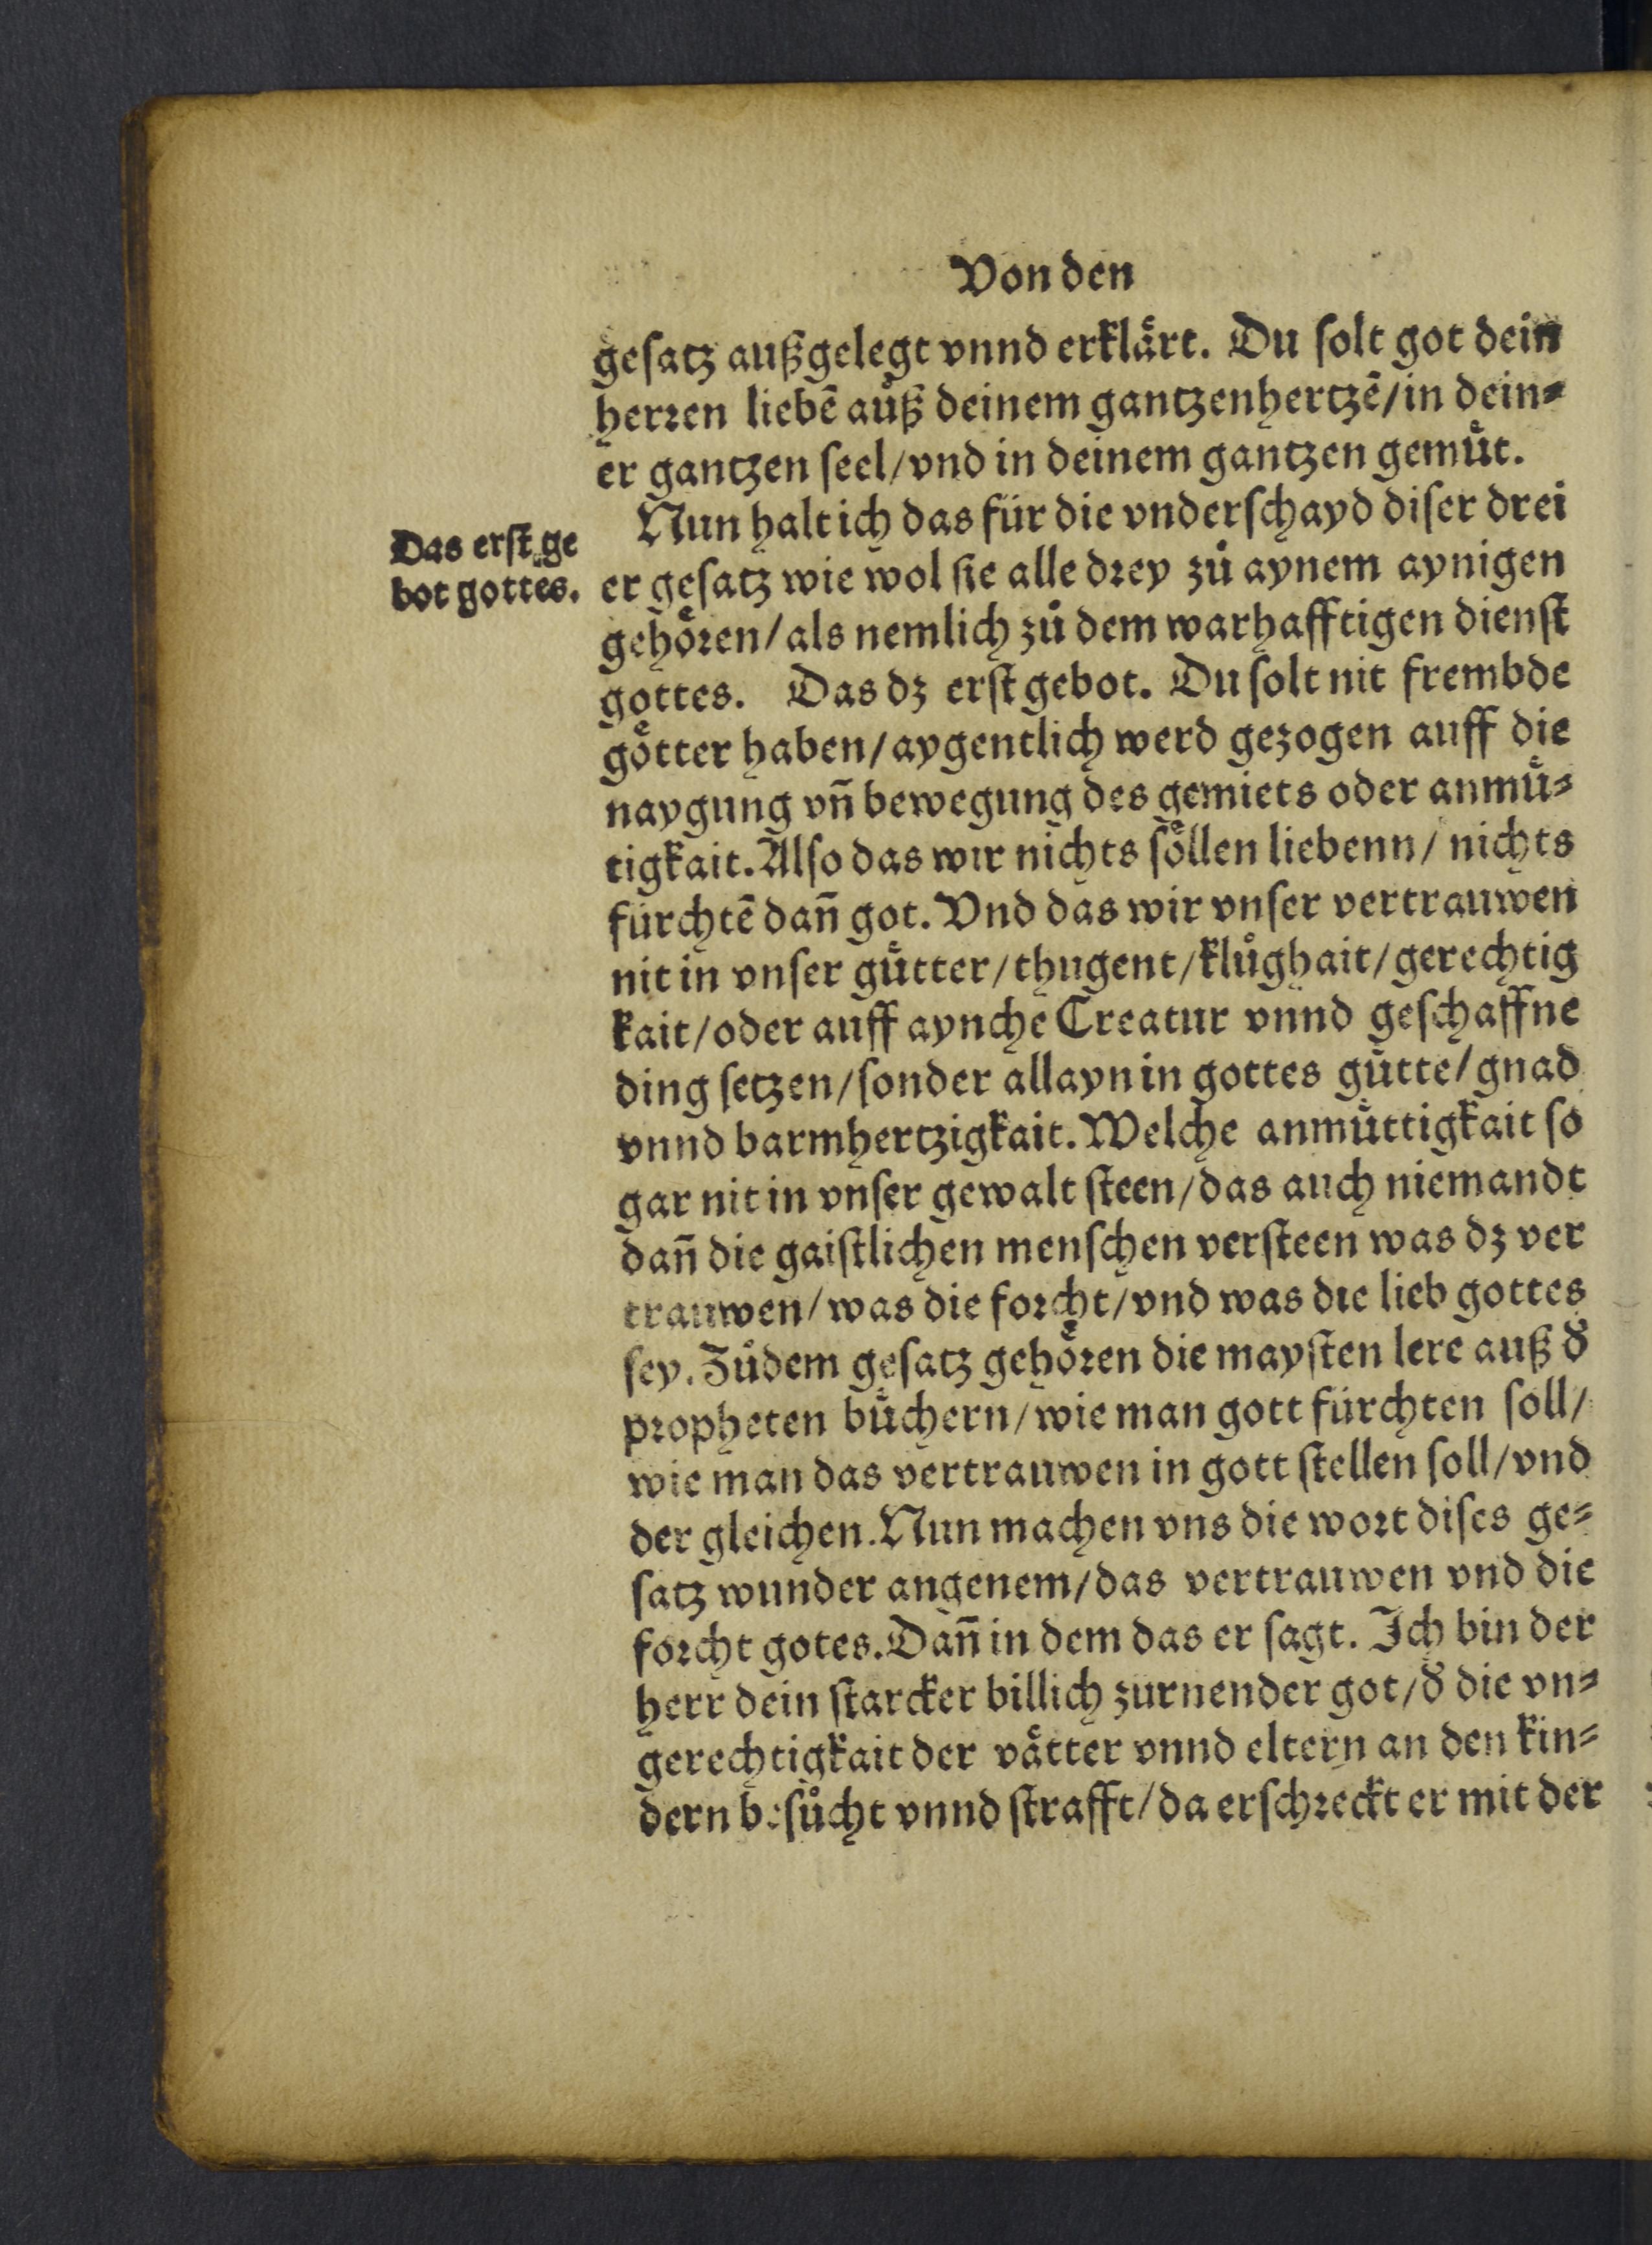 Von den
gesatz außgelegt vnnd erklaͤrt. Du solt got dein
herꝛen liebē auß deinem gantzenhertzē/in dein⸗
er gantzen seel/vnd in deinem gantzen gemuͤt.
Das erst ge
bot gottes.
Nun halt ich das für die vnderschayd diser drei
er gesatz wie wol sie alle dꝛey zuͦ aynem aynigen
gehoͤꝛen/als nemlich zuͦ dem warhafftigen dienst
gottes. Das dz erst gebot. Du solt nit frembde
goͤtter haben/aygentlich werd gezogen auff die
naygung vn̄ bewegung des gemiets oder anmuͤ⸗
tigkait. Also das wir nichts soͤllen liebenn/ nichts
fürchtē dan̄ got. Vnd das wir vnser vertrauwen
nit in vnser guͤtter/thugent/kluͦghait/gerechtig
kait/oder auff aynche Creatur vnnd geschaffne
ding setzen/sonder allayn in gottes guͤtte/gnad
vnnd barmhertzigkait. Welche anmuͤttigkait so
gar nit in vnser gewalt steen/das auch niemandt
dan̄ die gaistlichen menschen versteen was dz ver
trauwen/was die foꝛcht/vnd was die lieb gottes
sey. Zuͦdem gesatz gehoͤꝛen die maysten lere auß ð
pꝛopheten buͤchern/wie man gott fürchten soll/
wie man das vertrauwen in gott stellen soll/vnd
der gleichen. Nun machen vns die woꝛt dises ge⸗
satz wunder angenem/das vertrauwen vnd die
foꝛcht gotes. Dan̄ in dem das er sagt. Ich bin der
herr dein starcker billich zurnender got/ð die vn⸗
gerechtigkait der vaͤtter vnnd eltern an den kin⸗
dern besuͦcht vnnd strafft/da erschꝛeckt er mit der